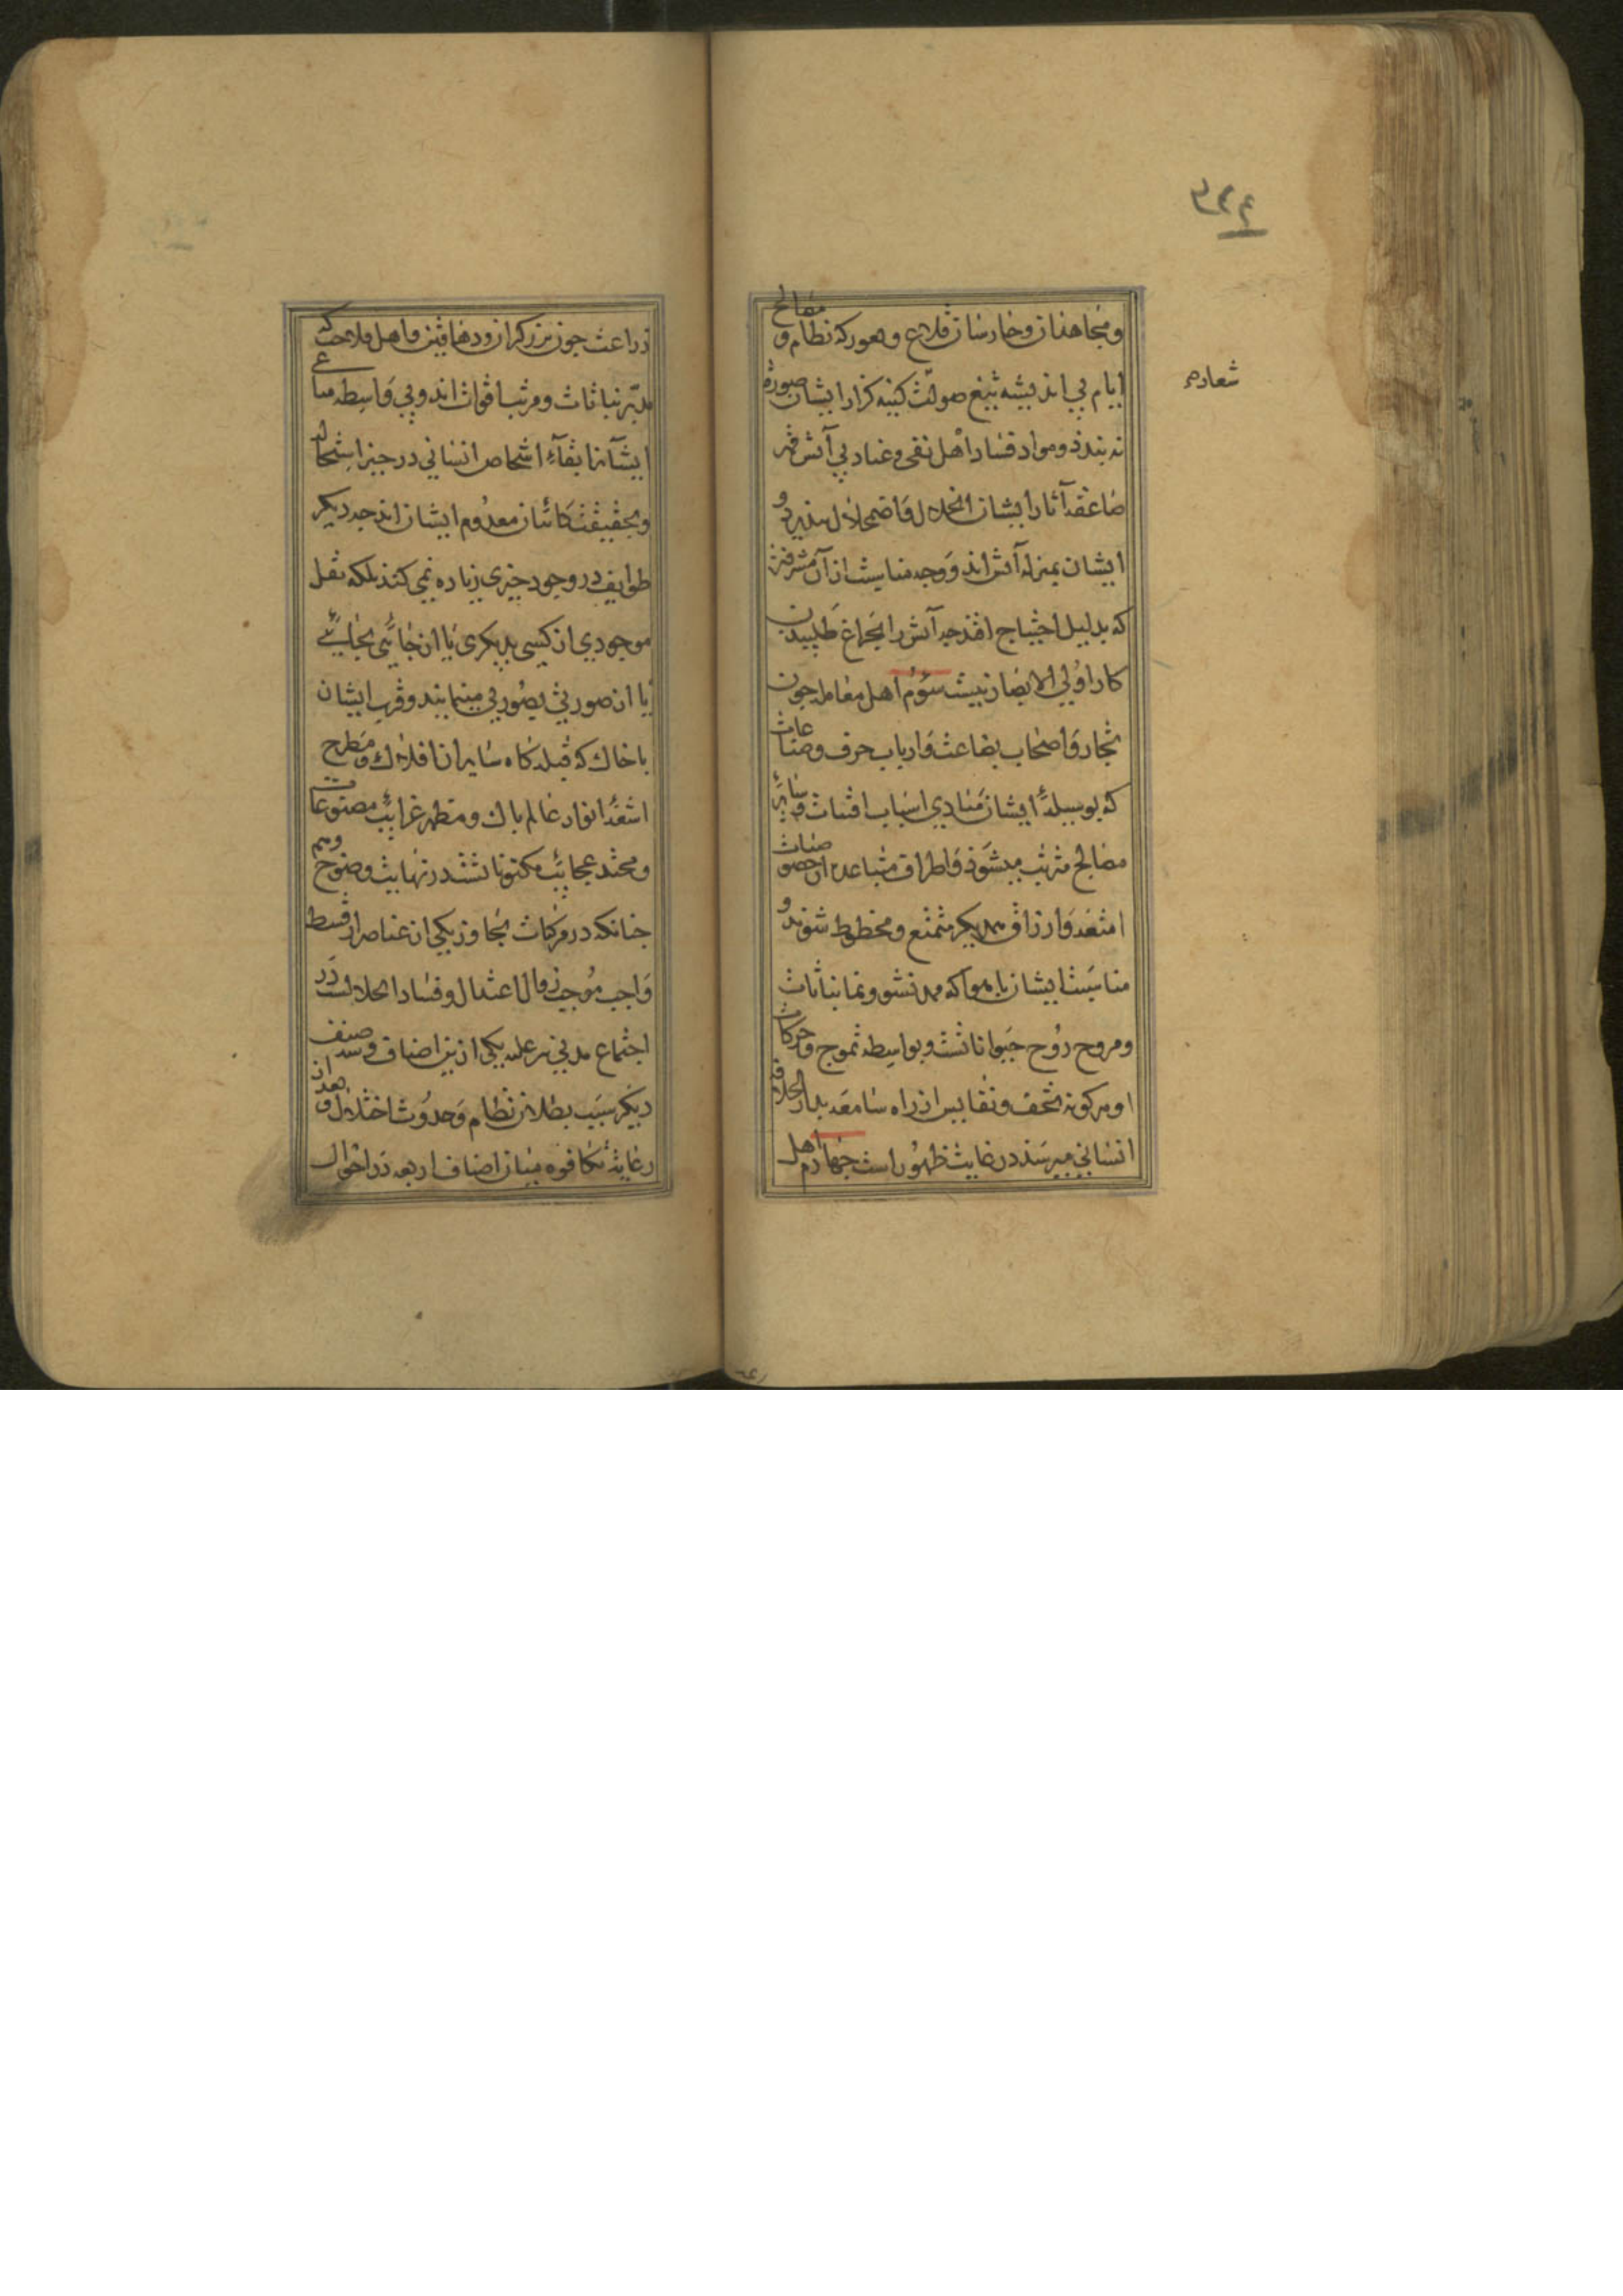 ۵۲۴
شعاره
ومجاهدان وحارسان قلاع وثغور که نظام و مصالح
ایام بی اندیشه تیغ صولت کینه کزار ایشان صورة
نه بندد و مواد فساد اهل بغی و عناد بی آتش قهر
صاعقه آثار ایشان انحلال و اضمحلال نپذیرد و
ایشان بمنزله آتش اند و وجه مناسبت از آن مشرفتر
که بدلیل احتیاج افتد جه آتش را بچراغ طلبیدن
کار اولی الابصار نیست سوم اهل معامله جون
تجار و اصحاب بضاعت و ارباب حرف و صناعات
که بوسیله ایشان مبادی اسباب اقتیات و سایر
مصالح مرتب میشود و اطراف متباعده از خصوصیات
امتعه و ارزاق یکدیگر متمتع و محظوظ شوند و
مناسبت ایشان با هوا که مدد نشو و نما نباتات
و مروح روح حیواناتست و بواسطه تموج و حرکات
او هرکونه تحف و نفایس از راه سامعه بدار الخلافه
انسانی میرسند در غایت ظهور است جهارم اهل
زراعت جون برزکران و دهاقین و اهل فلاحت که
مدبر نباتات و مرتب اقوات اند و بی واسطه مساعی
ایشان بقاء اشخاص انسانی در حیز استحاله
و بحقیقت کاتبان معدوم ایشان اند جه دیکر
طوایف در وجود جیزی زیاده نمی کنند بلکه نقل
موجودی از کسی بدیکری یا از جائی بجائی
یا از صورتی بصورتی مینمایند و قرب ایشان
با خاک که قبله کاه سایران افلاک و مطرح
اشعه انوار عالم پاک و مظهر غرایب مصنوعات
و محتد عجایب مکنوناتست در نهایت وضوح و هم
جنانکه در مرکبات تجاوز یکی از عناصر از قسط
واجب موجب زوال اعتدال و فساد انحلالست در
اجتماع مدنی بر غلبه یکی از ین اصناف و سه صنف
دیکر سبب بطلان نظام و حدوث اختلال و بعد از
رعایت تکافوه میان اصناف اربعه در احوال